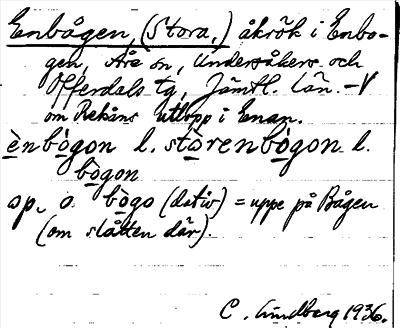 Enbågen, (Stora,) åkrök i Enbo-
gen, Åre sn, Undersåkers och
Offerdals tg, Jämtl. län. – V
om Rekåns utlopp i Enan.
ènbògon l. stòrenbògon l.
bògon
op, o bògo (dativ) = uppe på Bågen
(om slåtten där).
C. Lindberg 1936.